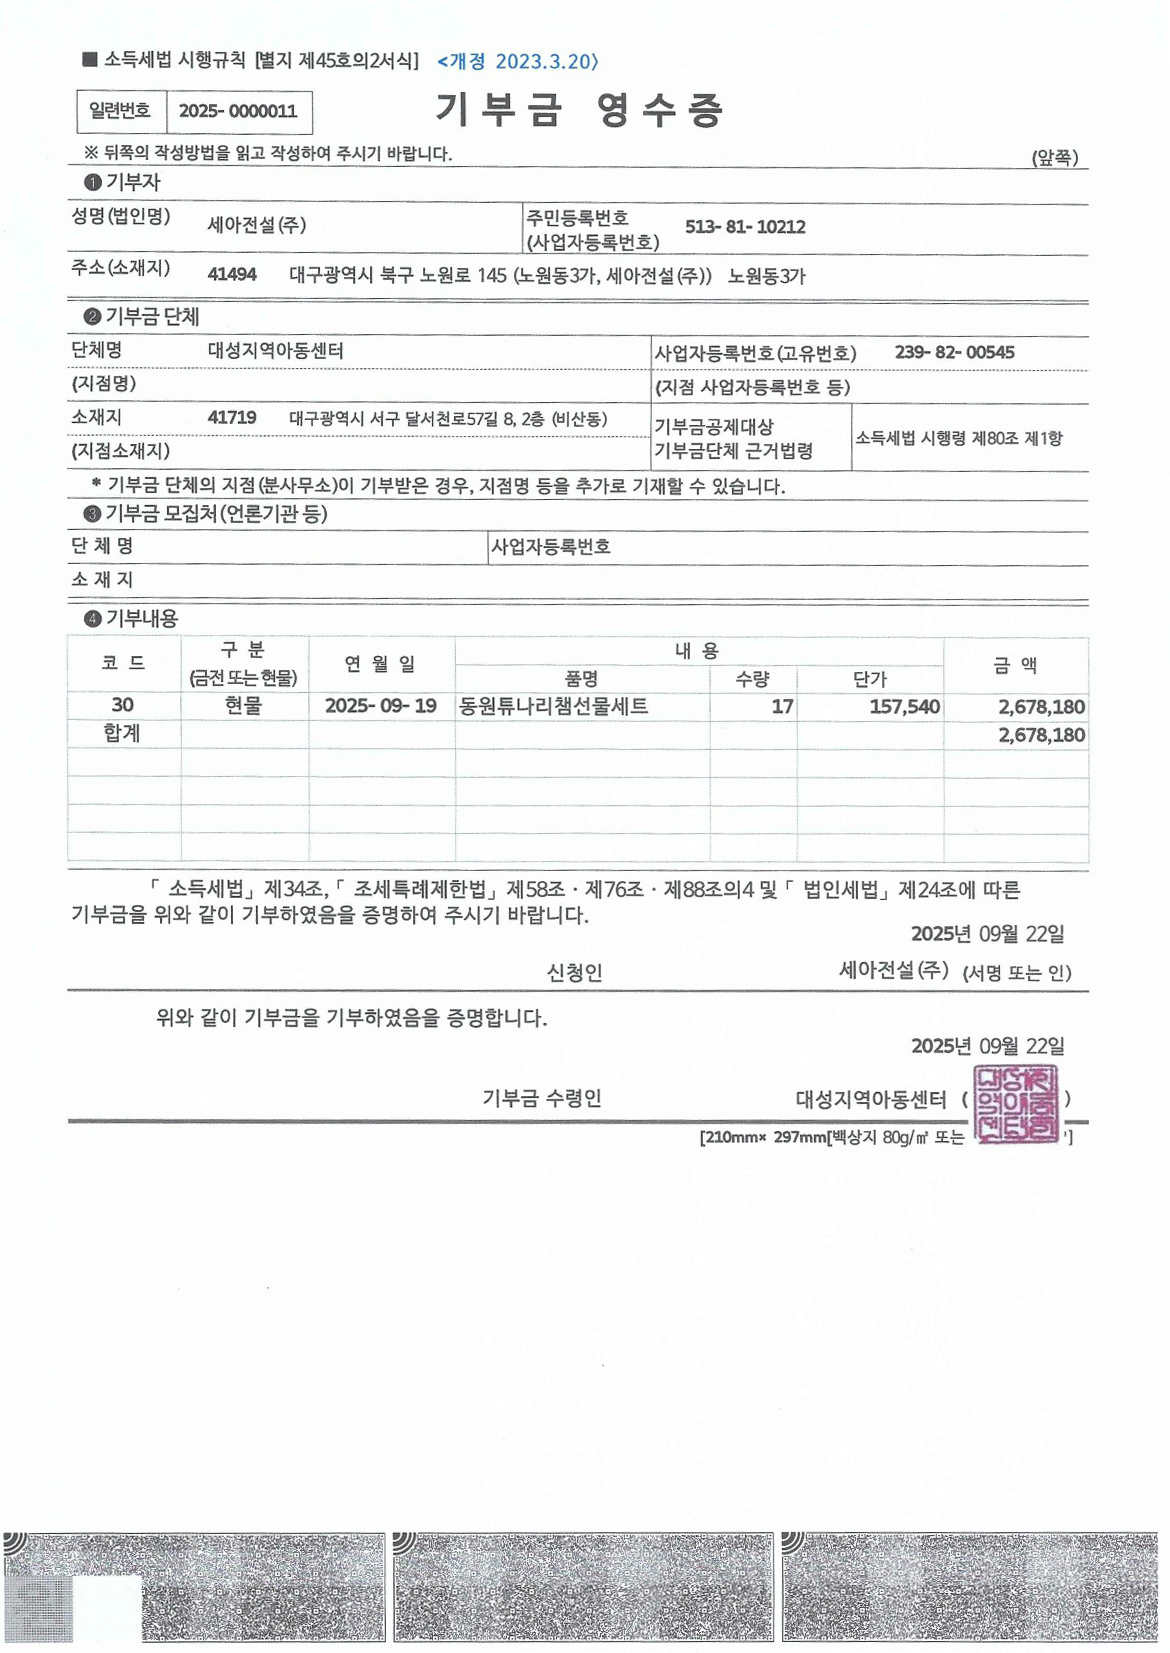 ■ 소득세법 시행규칙 [별지 제45호의2서식] <개정 2023.3.20>
일련번호 2025- 0000011
기부금 영수증
※ 뒤쪽의 작성방법을 읽고 작성하여 주시기 바랍니다. (앞쪽)
❶ 기부자
성명(법인명) 세아전설(주) 주민등록번호 (사업자등록번호) 513- 81- 10212
주소(소재지) 41494 대구광역시 북구 노원로 145 (노원동3가, 세아전설(주)) 노원동3가
❷ 기부금 단체
단체명 대성지역아동센터 사업자등록번호(고유번호) 239- 82- 00545
(지점명) (지점 사업자등록번호 등)
소재지 41719 대구광역시 서구 달서천로57길 8, 2층 (비산동)
(지점소재지)
기부금공제대상
기부금단체 근거법령
소득세법 시행령 제80조 제1항
* 기부금 단체의 지점(분사무소)이 기부받은 경우, 지점명 등을 추가로 기재할 수 있습니다.
❸ 기부금 모집처(언론기관 등)
단 체 명 사업자등록번호
소 재 지
❹ 기부내용
코 드 구 분 (금전 또는 현물) 연 월 일 내 용 금 액
품명 수량 단가
30 현물 2025- 09- 19 동원튜나리챔선물세트 17 157,540 2,678,180
합계 2,678,180
「 소득세법」 제34조, 「 조세특례제한법」 제58조 · 제76조 · 제88조의4 및 「 법인세법」 제24조에 따른
기부금을 위와 같이 기부하였음을 증명하여 주시기 바랍니다.
2025년 09월 22일
신청인 세아전설(주) (서명 또는 인)
위와 같이 기부금을 기부하였음을 증명합니다.
2025년 09월 22일
기부금 수령인 대성지역아동센터 ( )
[210mm× 297mm[백상지 80g/㎡ 또는 ']